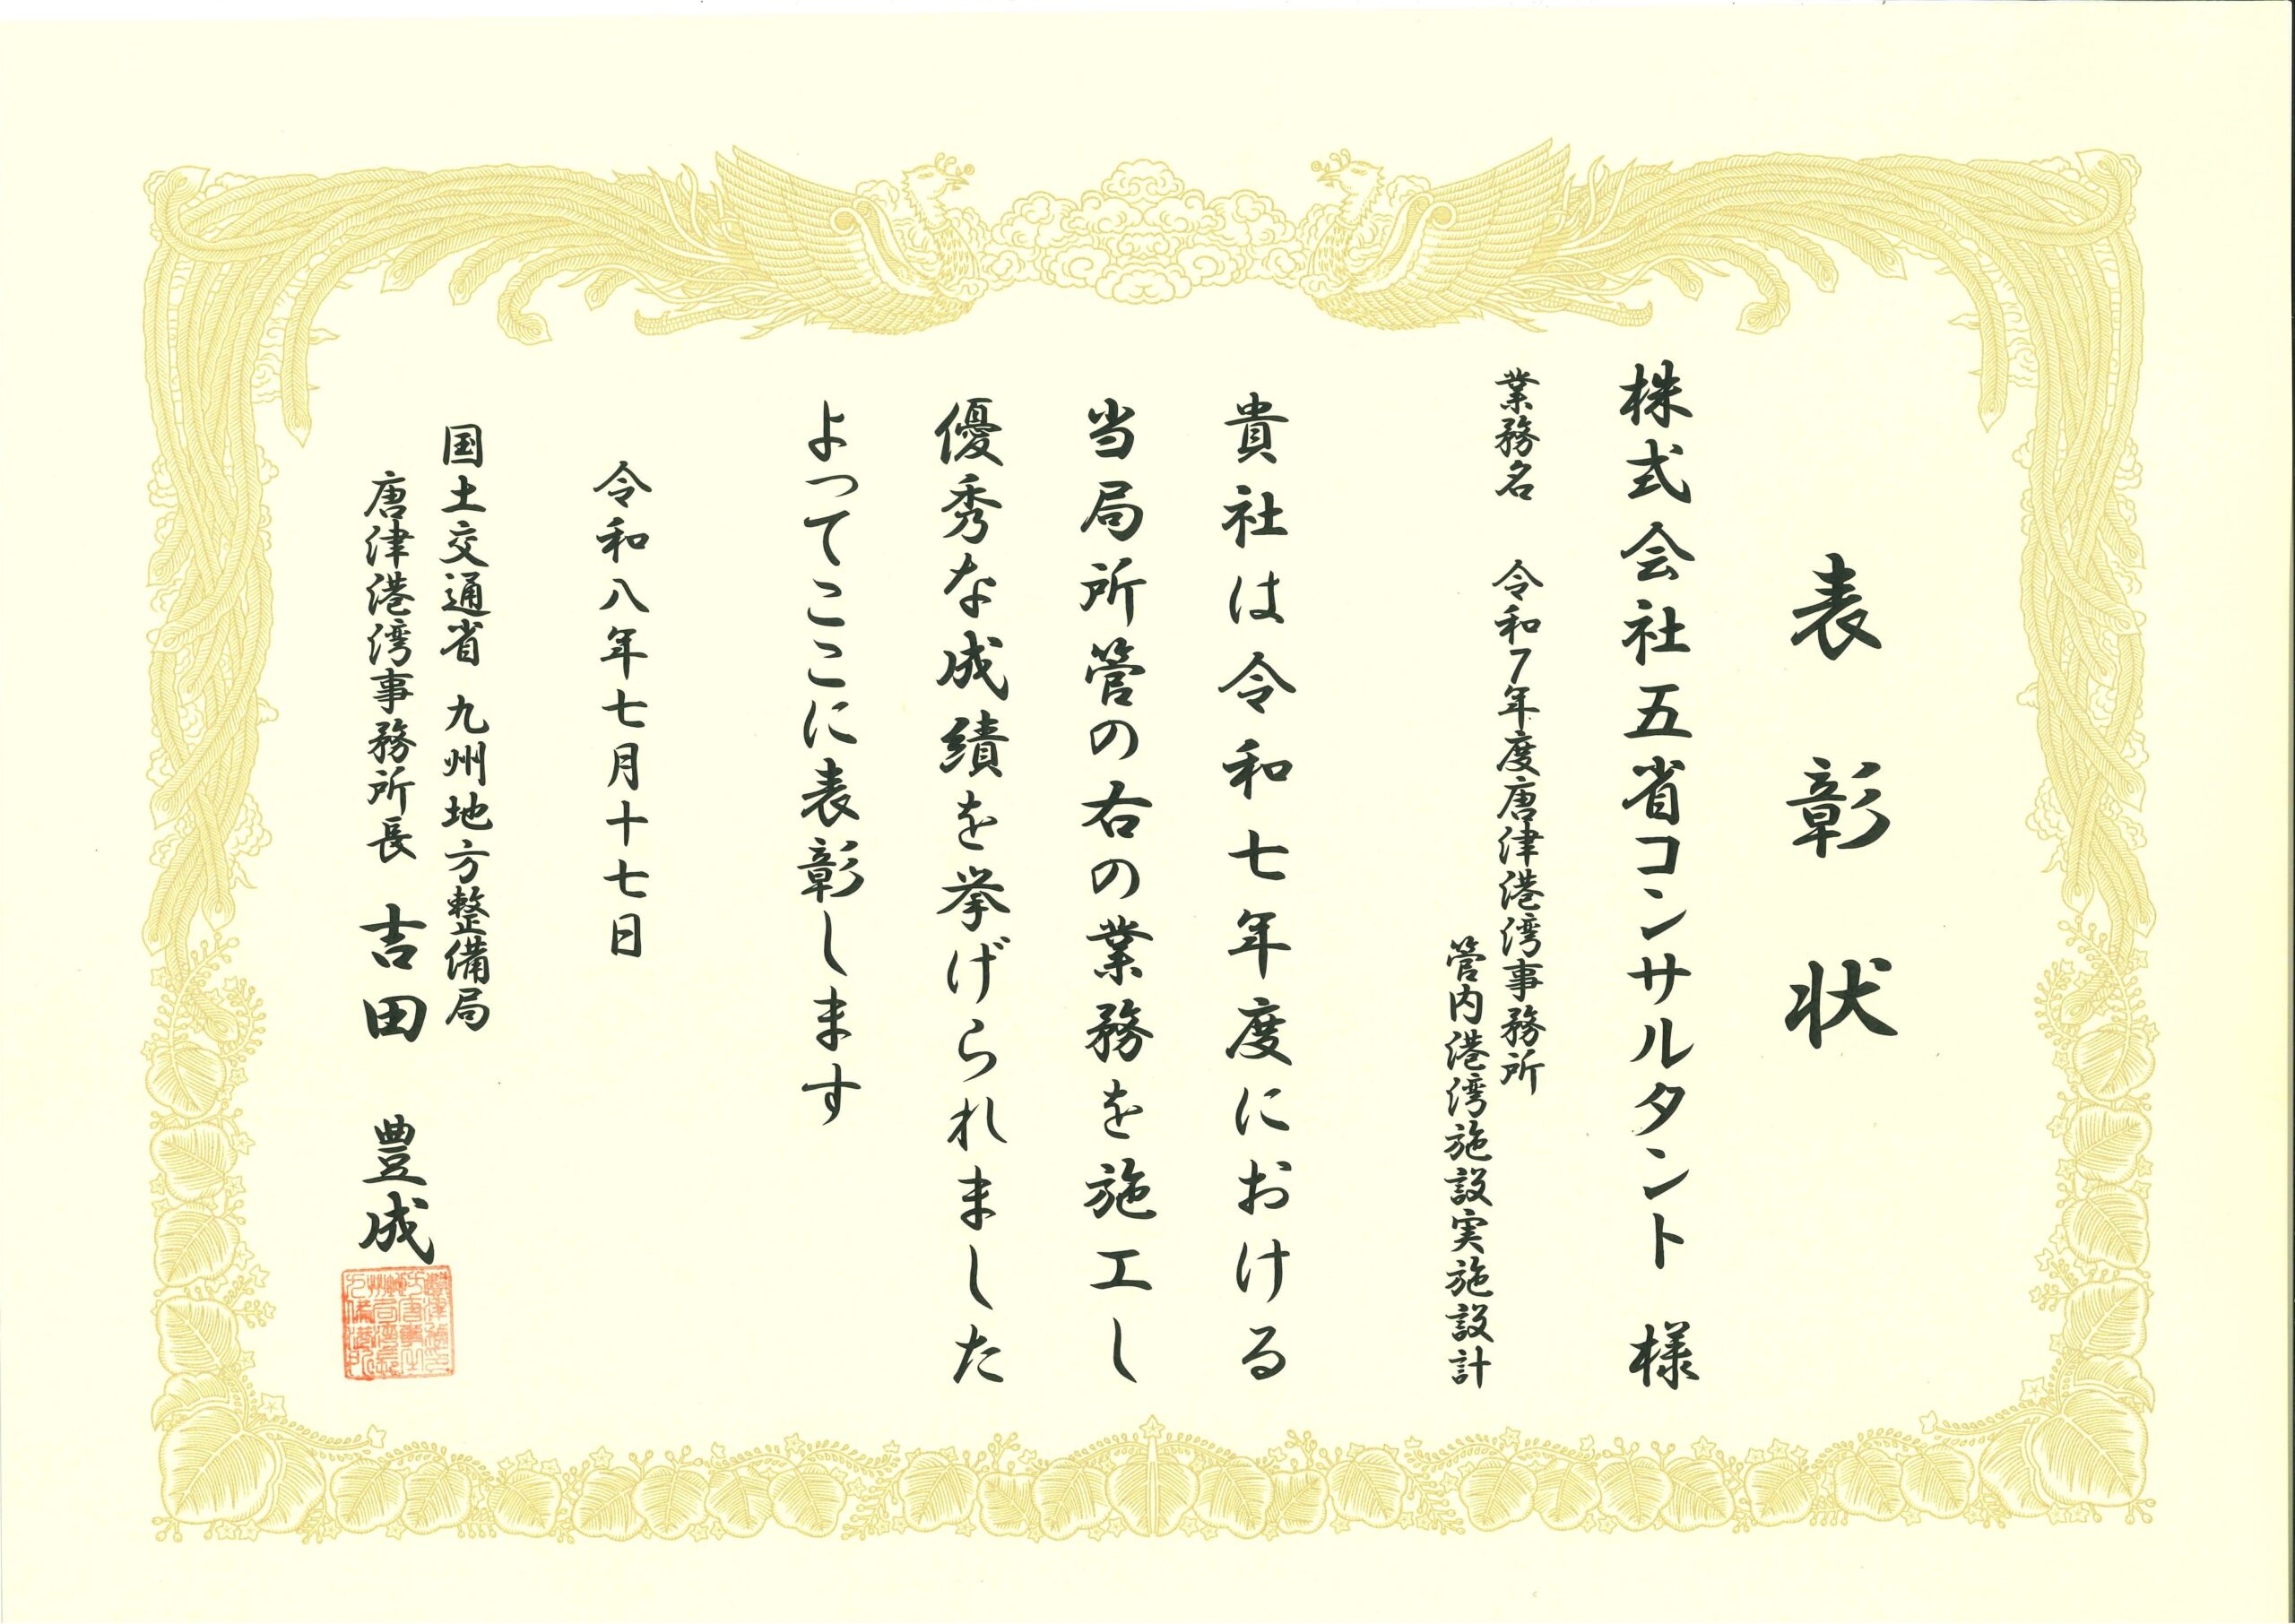 表彰状
株式会社五省コンサルタント 様
業務名 令和7年度唐津港湾事務所
管内港湾施設実施設計
貴社は令和七年度における
当局所管の右の業務を施工し
優秀な成績を挙げられました
よってここに表彰します
令和八年七月十七日
国土交通省 九州地方整備局
唐津港湾事務所長 吉田 豊成